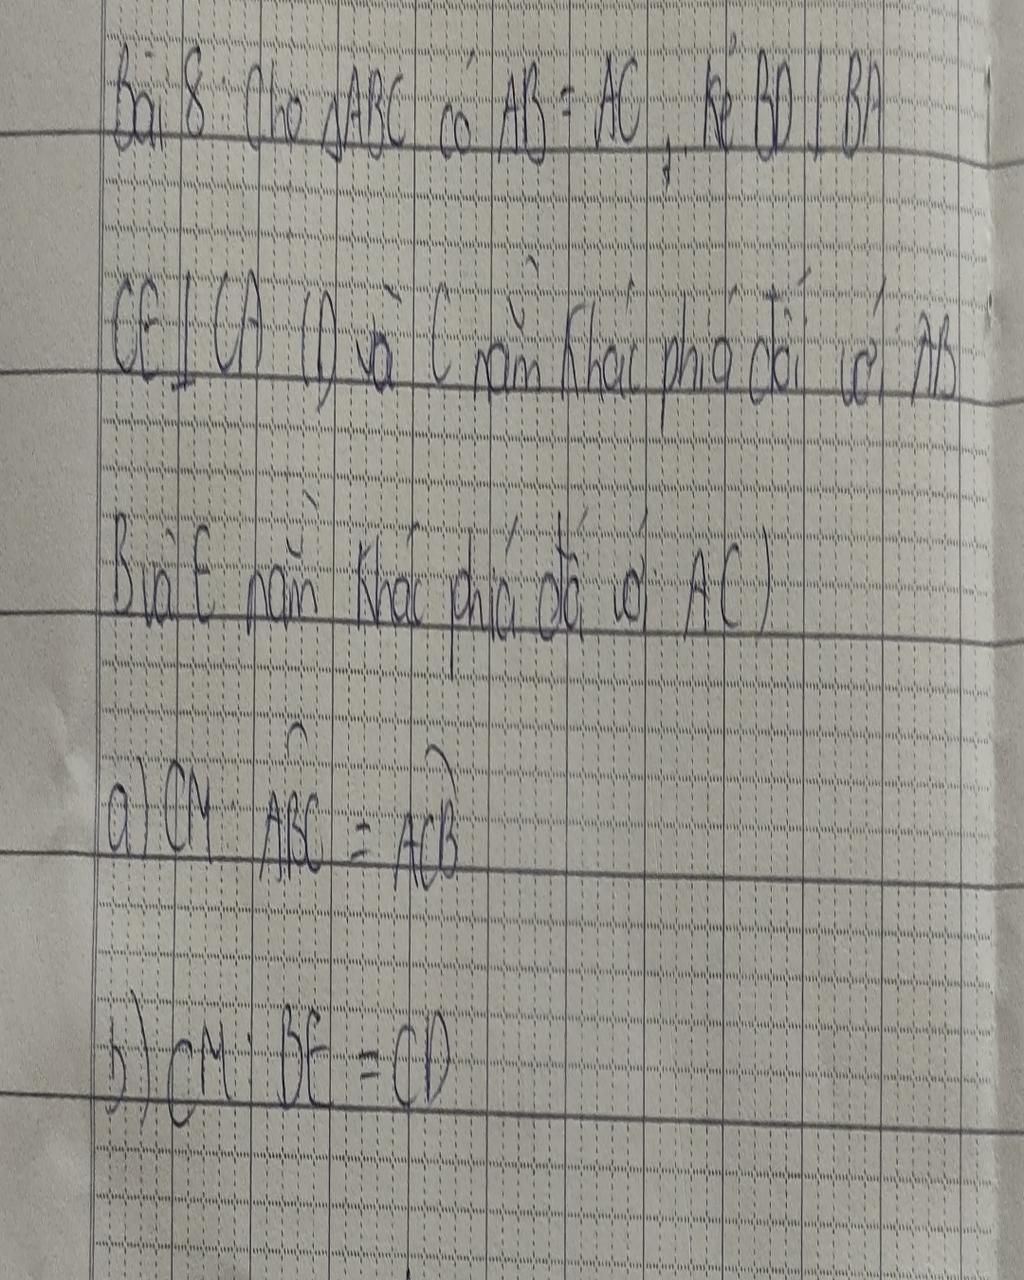 Bài 8: Cho △ABC có AB = AC, kẻ BD ⊥ BA
CE ⊥ CA (D và C nằm khác phía đối với AB
B và E nằm khác phía đối với AC)
a) CM: ABC = ACB
b) CM: BE = CD